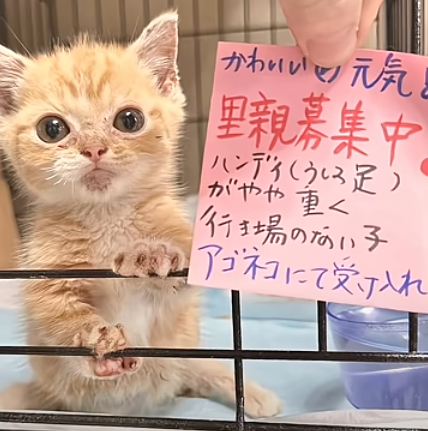 かわいい 元気
里親募集中
ハンディ(うしろ足)
がやや重く
行き場のない子
アゴネコにて受け入れ